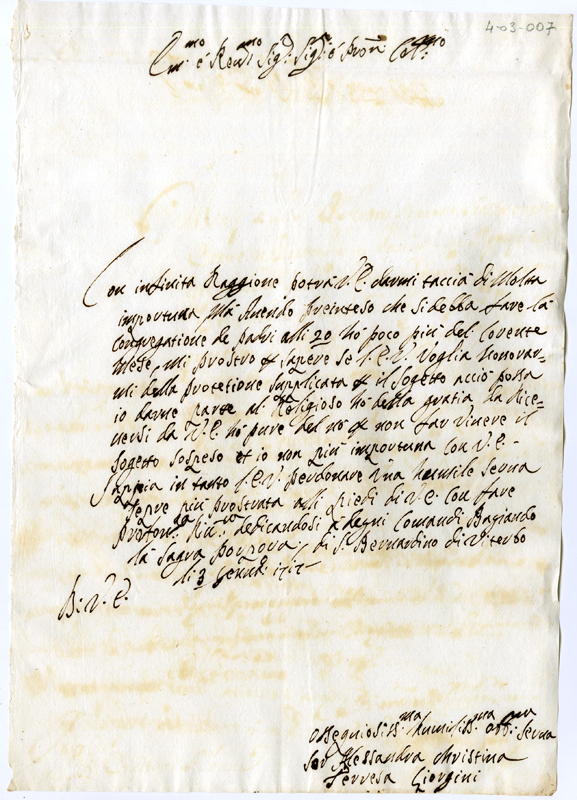 4-03-007
Em:mo e Reu:mo Sig:r Sig:re e Pron Col:mo
Con infinita Raggione potrà V.E. darmi taccia di Molta
importuna Mà Auendo preinteso che si debba fare la
Congregatione de padri alli 20 ho poco più del Corente
mese, mi prostro per sapere se l'E.V. Voglia Honorar-
mi della protetione supplicata per il sogetto acciò possa
io darne parte al Religioso ho della gratia da rice-
uersi da V.E. ho pure del nò per non far Viuere il
sogetto sospeso et io non più importuna con V.E.
Sappia in tanto l'E.V. perdonare una humile serua
più prostrata alli piedi di V.E. Con fare
profon:da Riu:za dedicandosi a degni Comandi Bagiando
la Sagra porpora, di S. Bernardino di Viterbo
di 3 Genn:
D: V. E.
Ossequiosis:ma humilis:ma obb:ma Serua
Suor Alessandra Christina
Terresa Giorgini